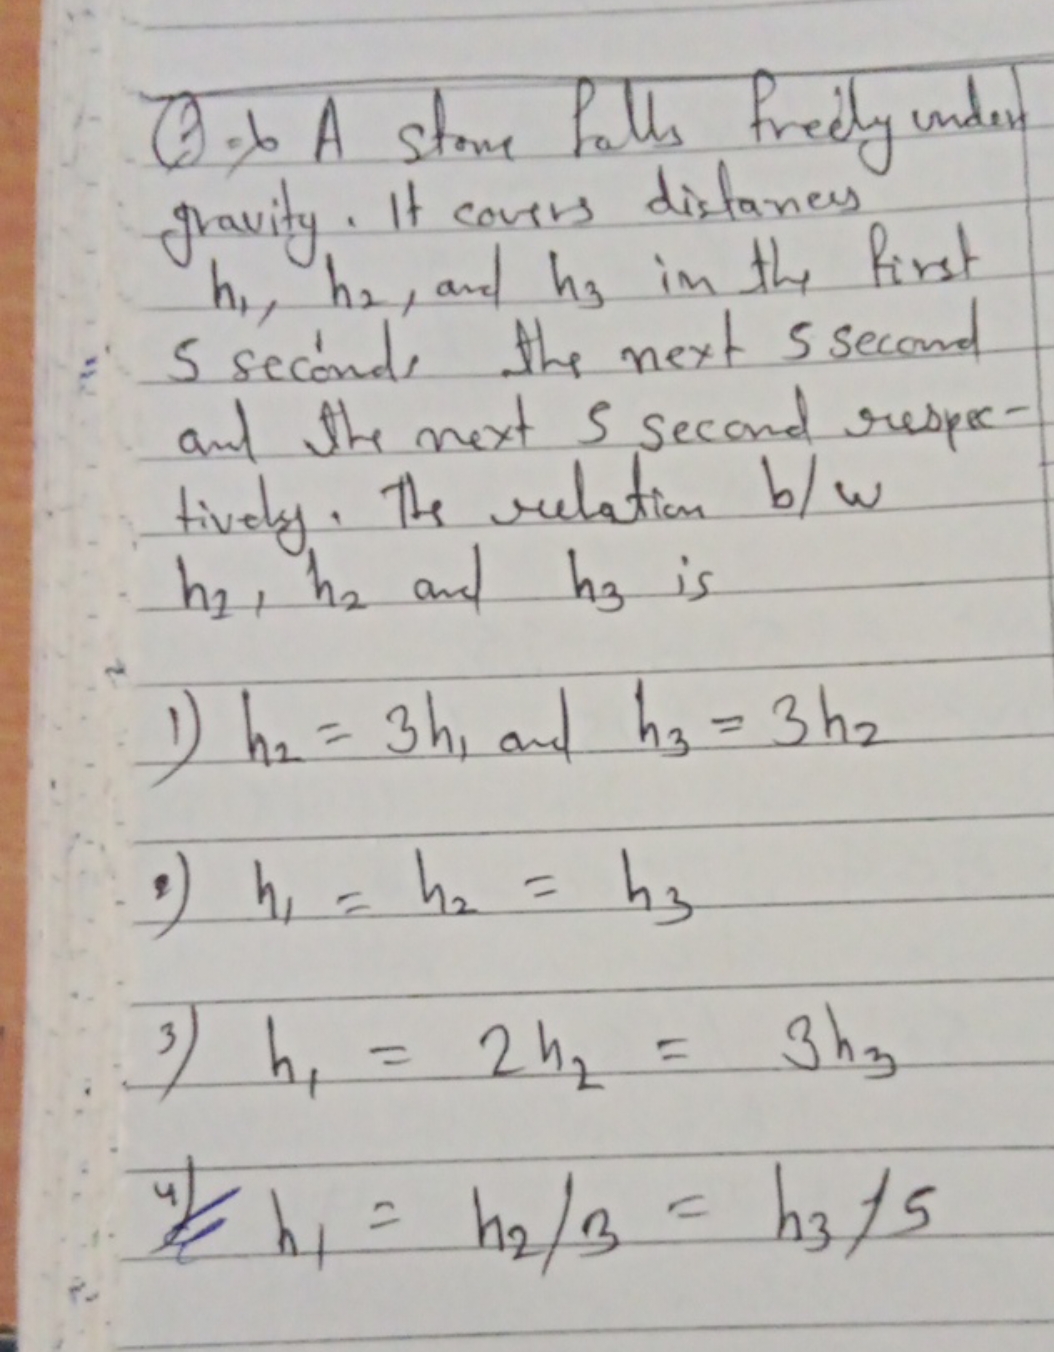 Q.6 A stone falls freely under
gravity. It covers distances
h₁, h₂, and h₃ in the first
5 seconds the next 5 second
and the next 5 second respec-
tively. The relation b/w
h₁, h₂ and h₃ is
1) h₂ = 3h₁ and h₃ = 3h₂
2) h₁ = h₂ = h₃
3) h₁ = 2h₂ = 3h₃
4) h₁ = h₂/3 = h₃/5